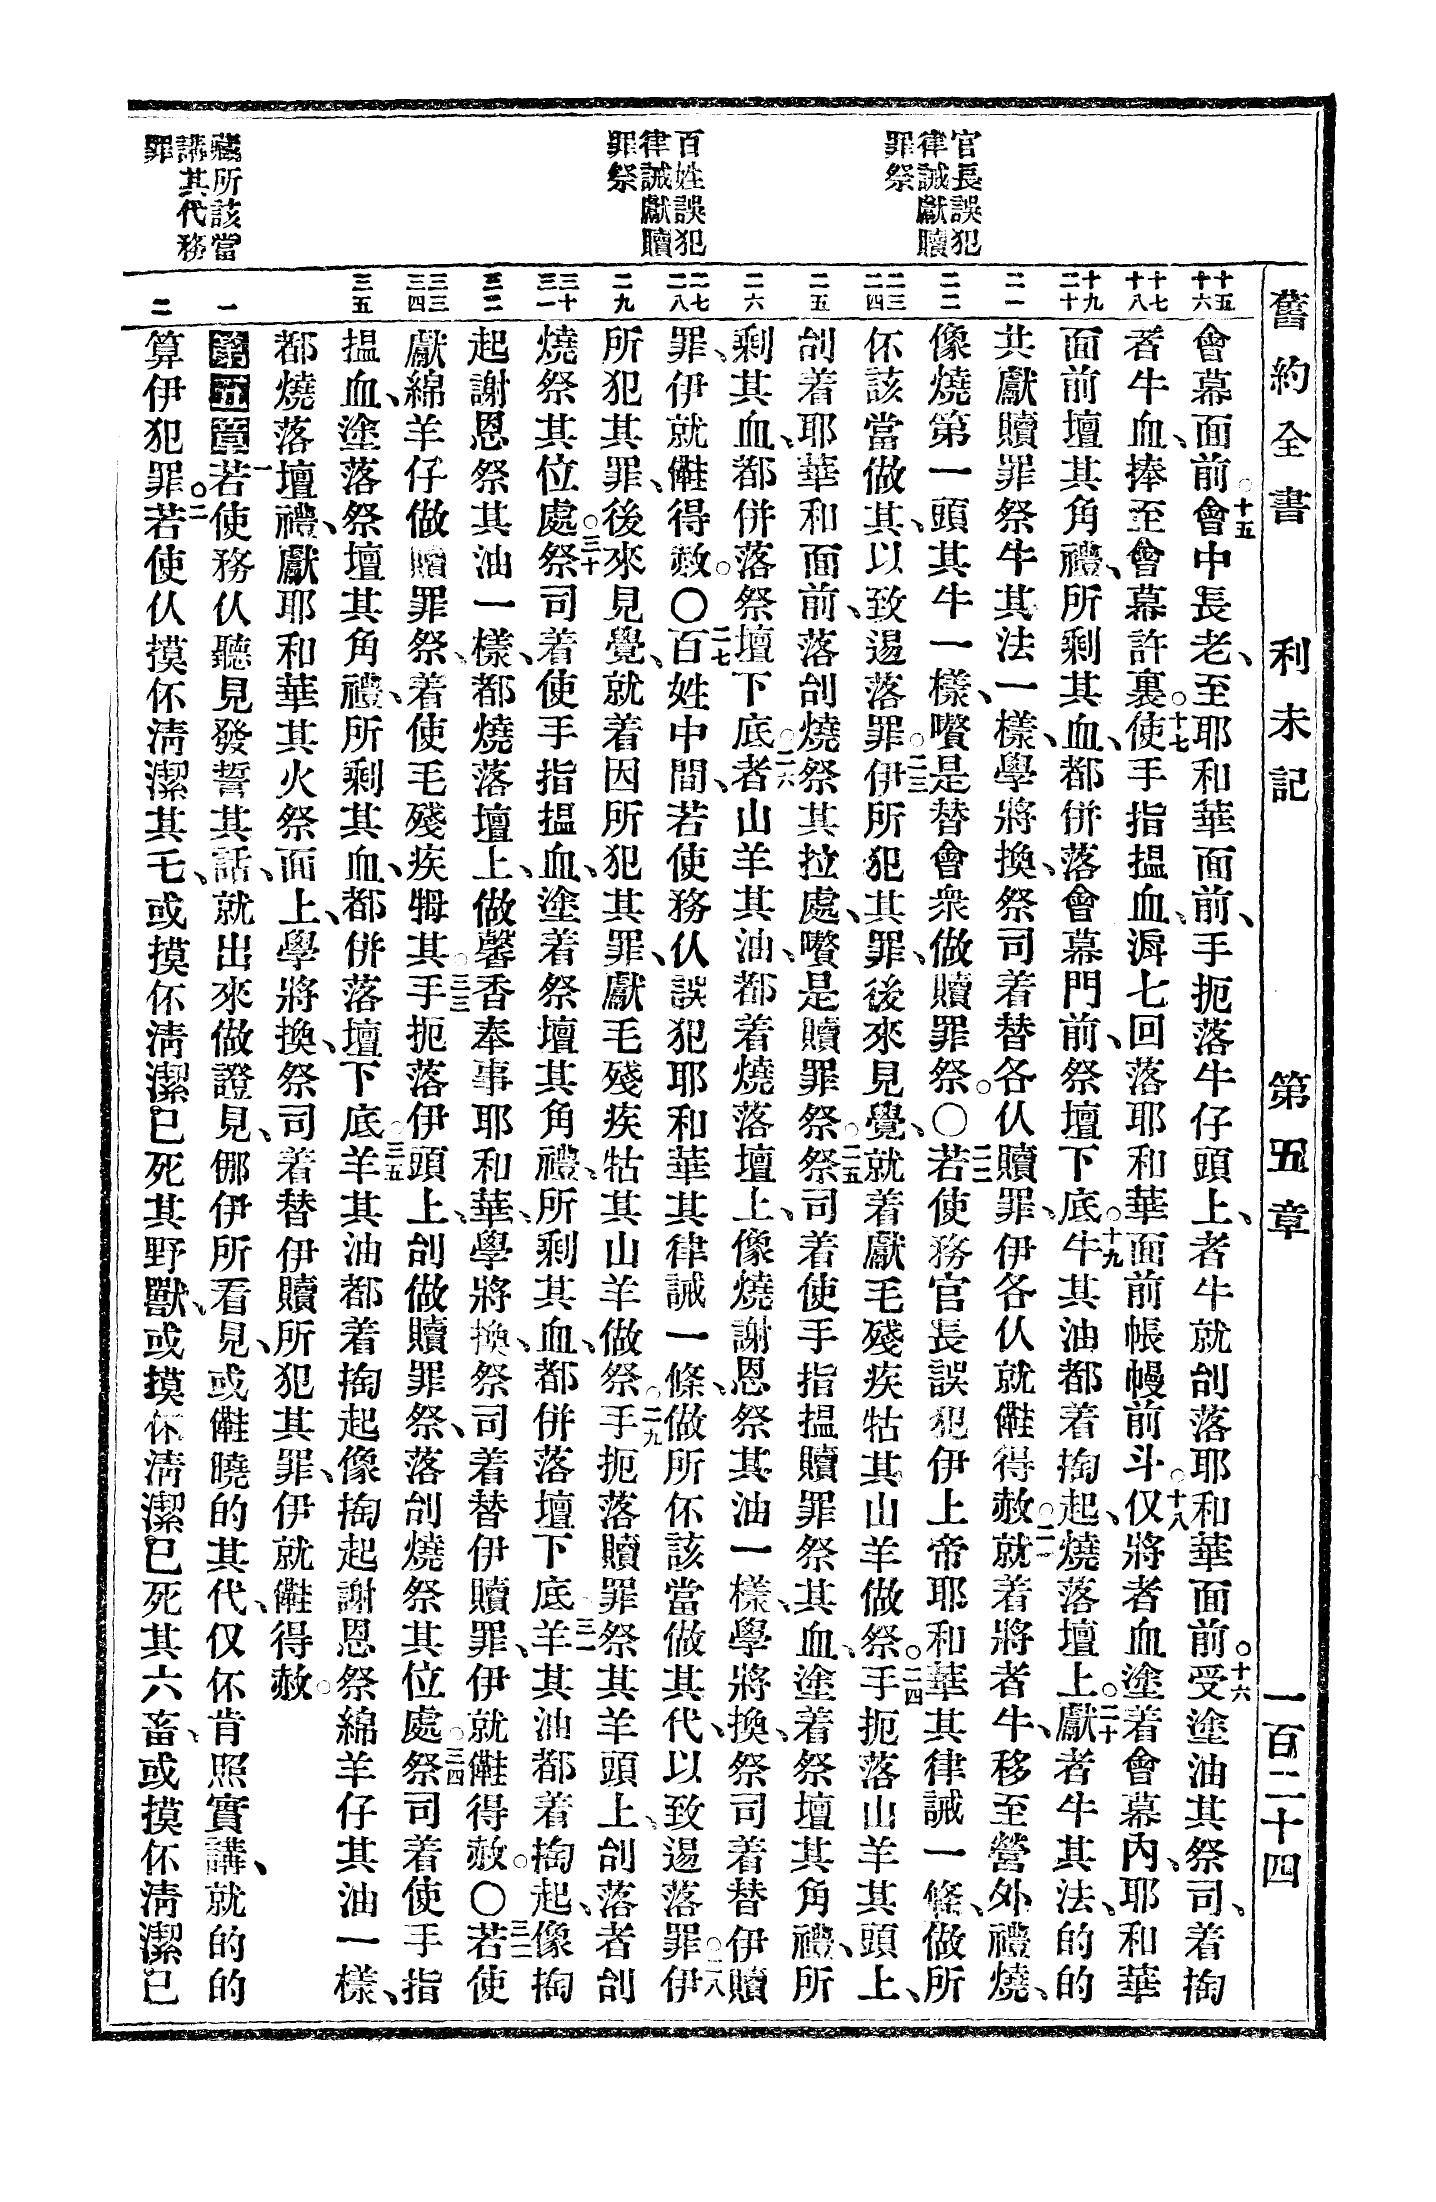 舊約全書 利未記 第五章 一百二十四
官長誤犯
律誡獻贖
罪祭
百姓誤犯
律誡獻贖
罪祭
藏所該當
講其代務
罪
十五 十六
十七 十八
十九 二十
二一
二二
二三 二四
二五
二六
二七 二八
二九
三十 三一
三二
三三 三四
三五
一
二
會幕面前。十五會中長老、至耶和華面前、手扼落牛仔頭上、者牛就刣落耶和華面前。十六受塗油其祭司、着掏
者牛血、捧至會幕許裏。十七使手指揾血、滒七回落耶和華面前帳幔前斗。十八仅將者血塗着會幕內、耶和華
面前壇其角禮、所剩其血、都併落會幕門前、祭壇下底。十九牛其油都着掏起、燒落壇上。二十獻者牛其法、的的
共獻贖罪祭牛其法一樣、學將換、祭司着替各仈贖罪、伊各仈就㑲得赦。二一就着將者牛、移至營外禮燒、
像燒第一頭其牛一樣、嚽是替會衆做贖罪祭。〇二二若使務官長誤犯伊上帝耶和華其律誡一條、做所
伓該當做其、以致逿落罪。二三伊所犯其罪、後來見覺、就着獻毛殘疾牯其山羊做祭。二四手扼落山羊其頭上、
刣着耶華和面前、落刣燒祭其拉處、嚽是贖罪祭。二五祭司着使手指揾贖罪祭其血、塗着祭壇其角禮、所
剩其血、都併落祭壇下底。二六者山羊其油、都着燒落壇上、像燒謝恩祭其油一樣、學將換、祭司着替伊贖
罪、伊就㑲得赦。〇二七百姓中間、若使務仈誤犯耶和華其律誡一條、做所伓該當做其代、以致逿落罪。二八伊
所犯其罪、後來見覺、就着因所犯其罪、獻毛殘疾牯其山羊做祭。二九手扼落贖罪祭其羊頭上、刣落者刣
燒祭其位處。三十祭司着使手指揾血、塗着祭壇其角禮、所剩其血、都併落壇下底三一羊其油都着掏起、像掏
起謝恩祭其油一樣、都燒落壇上、做馨香奉事耶和華、學將換、祭司着替伊贖罪、伊就㑲得赦。〇三二若使
獻綿羊仔做贖罪祭、着使毛殘疾㹇其。三三手扼落伊頭上、刣做贖罪祭、落刣燒祭其位處。三四祭司着使手指
揾血、塗落祭壇其角禮、所剩其血、都併落壇下底。三五羊其油都着掏起像掏起謝恩祭綿羊仔其油一樣、
都燒落壇禮、獻耶和華其火祭面上、學將換、祭司着替伊贖所犯其罪、伊就㑲得赦。
第五章一若使務仈聽見發誓其話、就出來做證見、㑚伊所看見、或㑲曉的其代、仅伓肯照實講、就的的
算伊犯罪。二若使仈摸伓清潔其乇、或摸伓清潔已死其野獸、或摸伓清潔已死其六畜、或摸伓清潔已